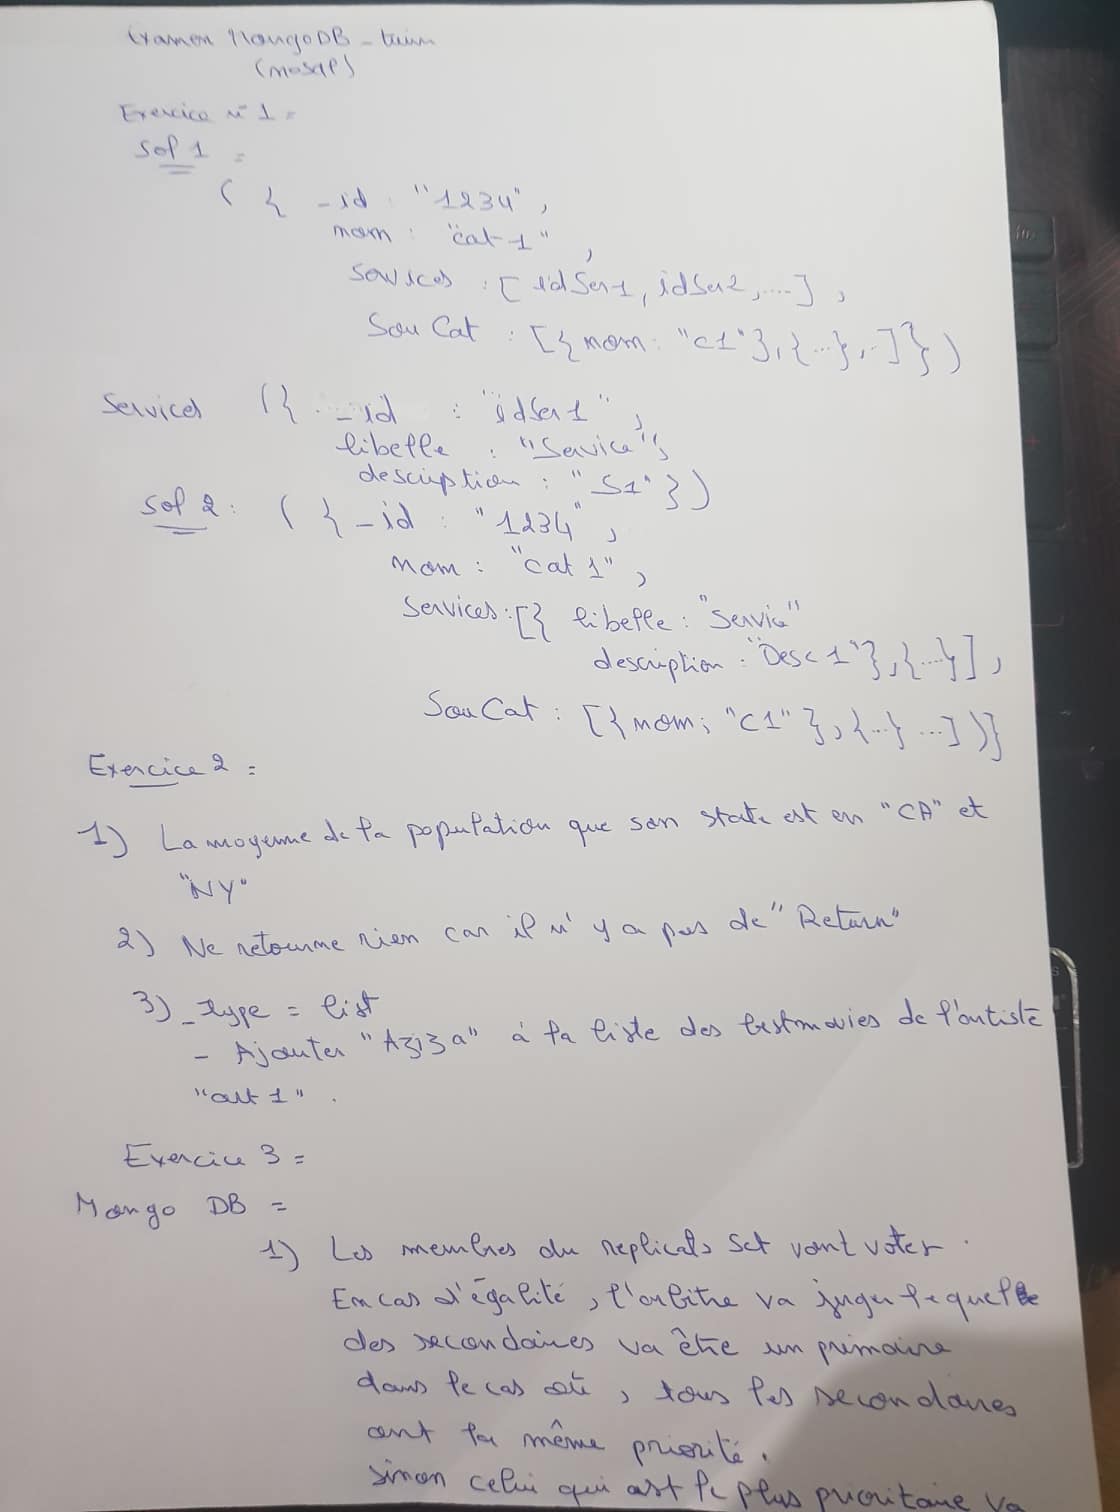 Examen MongoDB -
(NoSQL)
Exercice n° 1 =
Sol 1 =
( { _id : "1234",
nom : "cat 1",
Services : [idSer1, idSer2, ....],
SouCat : [{nom : "C1"}, {...}, ..]})
Services ({ _id : "idSer1",
libelle : "Service",
description : "S1"})
Sol 2 : ( { _id : "1234",
nom : "cat 1",
Services : [{ libelle : "Servic"
description : "Desc 1"}, {...}],
SouCat : [{nom ; "C1"}, {...} ...] )}
Exercice 2 =
1) La moyenne de la population que son state est en "CA" et
"NY"
2) Ne retourne rien car il n'y a pas de "Return"
3) _ type = list
- Ajouter "Aziza" à la liste des bestmovies de l'artiste
"art 1" .
Exercice 3 =
Mongo DB =
1) Les membres du replicats Set vont voter .
En cas d'égalité, l'arbitre va juger lequel
des secondaires va être un primaire
dans le cas où , tous les secondaires
ont la même priorité.
sinon celui qui est le plus prioritaire va